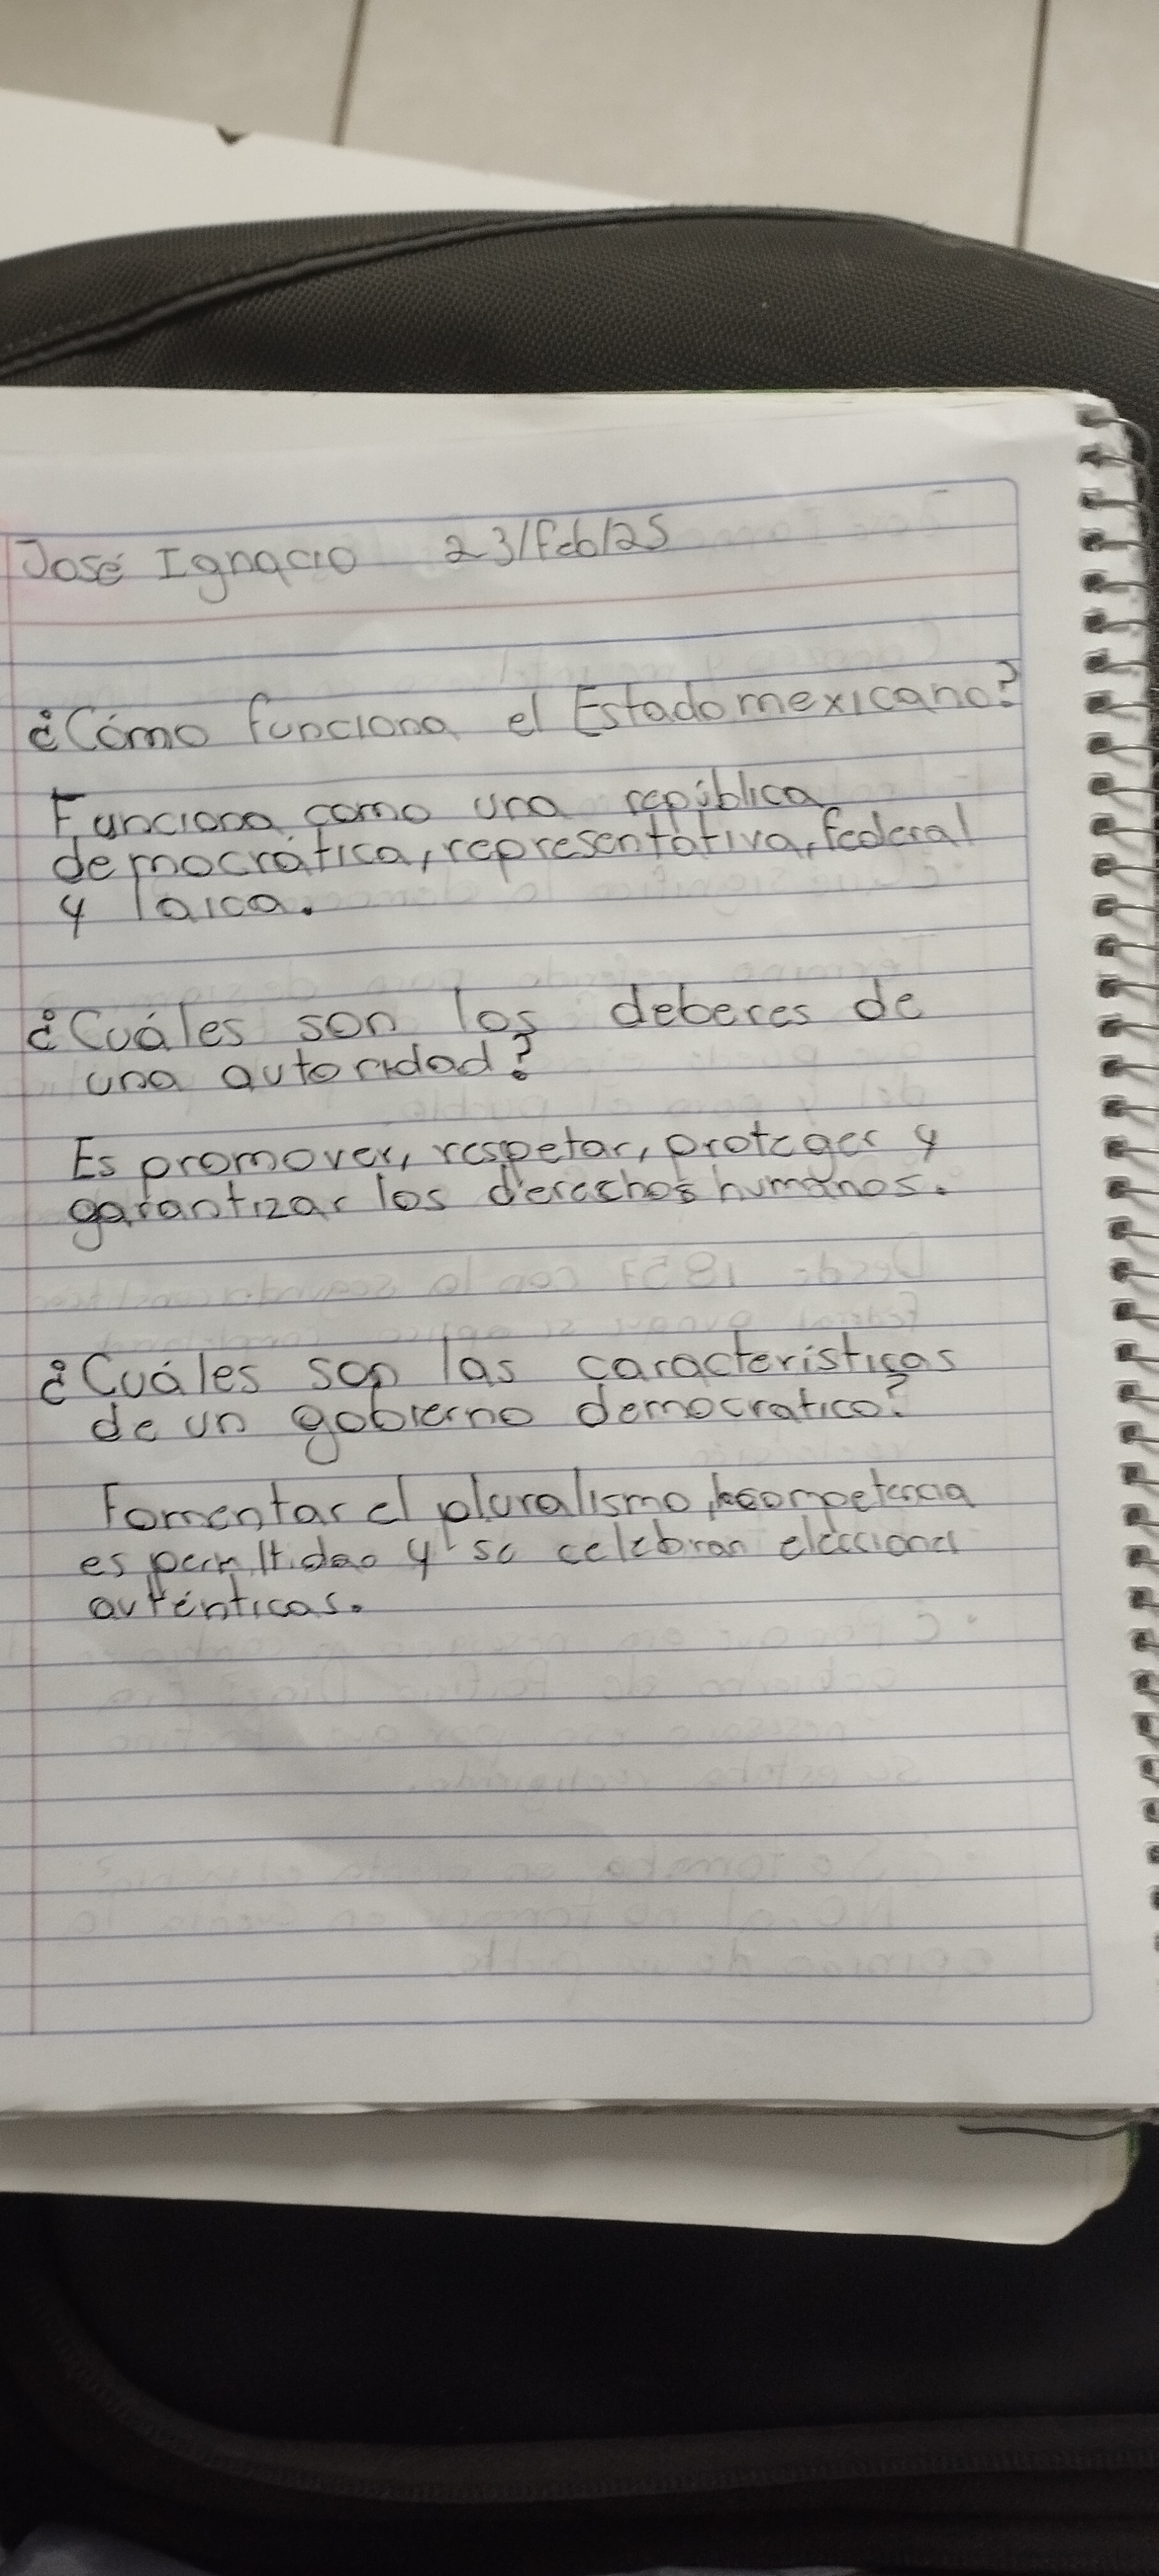 José Ignacio 23/Feb/25
¿Cómo funciona el Estado mexicano?
Funciona como una república
democrática, representativa, federal
y laica.
¿Cuáles son los deberes de
una autoridad?
Es promover, respetar, proteger y
garantizar los derechos humanos.
¿Cuáles son las características
de un gobierno democratico?
Fomentar el pluralismo, competencia
es permitidao y se celebran elecciones
auténticas.